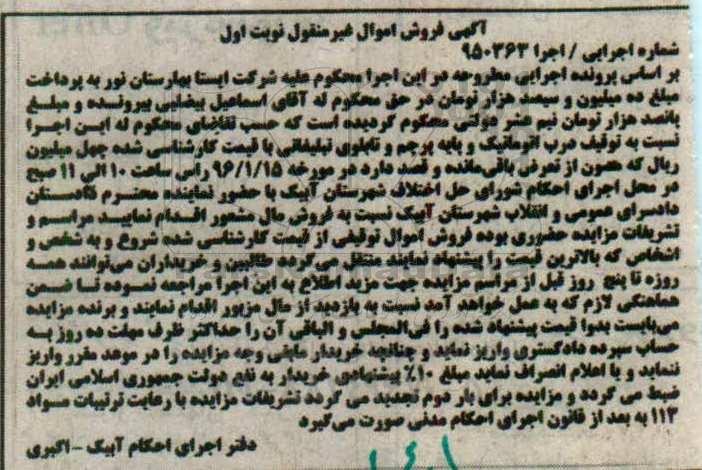 آگهی فروش اموال غیرمنقول نوبت اول
شماره اجرایی / اجرا ۹۵۰۳۶۳
بر اساس پرونده اجرایی مطروحه در این اجرا محکوم علیه شرکت ایستا بهارستان نور به پرداخت
مبلغ ده میلیون و سیصد هزار تومان در حق محکوم له آقای اسماعیل بیضایی بیرونده و مبلغ
پانصد هزار تومان نیم عشر دولتی محکوم گردیده است که حسب تقاضای محکوم له این اجرا
نسبت به توقیف درب اتوماتیک و پایه پرچم و تابلوی تبلیغاتی با قیمت کارشناسی شده چهل میلیون
ریال که مصون از تعرض باقی‌مانده و قصد دارد در مورخه ۹۶/۱/۱۵ راس ساعت ۱۰ الی ۱۱ صبح
در محل اجرای احکام شورای حل اختلاف شهرستان آبیک با حضور نماینده محترم دادستان
دادسرای عمومی و انقلاب شهرستان آبیک نسبت به فروش مال مشعور اقدام نماید مراسم و
تشریفات مزایده حضوری بوده فروش اموال توقیفی از قیمت کارشناسی شده شروع و به شخص و
اشخاص که بالاترین قیمت را پیشنهاد نمایند منتقل می‌گردد طالبین و خریداران می‌توانند همه
روزه تا پنج روز قبل از مراسم مزایده جهت مزید اطلاع به این اجرا مراجعه نموده تا ضمن
هماهنگی لازم که به عمل خواهد آمد نسبت به بازدید از مال مزبور اقدام نمایند و برنده مزایده
می‌بایست بدوا قیمت پیشنهاد شده را فی‌المجلس و الباقی آن را حداکثر ظرف مهلت ده روز به
حساب سپرده دادگستری واریز نماید و چنانچه خریدار مابقی وجه مزایده را در موعد مقرر واریز
ننماید و یا اعلام انصراف نماید مبلغ ۱۰٪ پیشنهادی خریدار به نفع دولت جمهوری اسلامی ایران
ضبط می گردد و مزایده برای بار دوم تجدید می گردد تشریفات مزایده با رعایت ترتیبات مواد
۱۱۳ به بعد از قانون اجرای احکام مدنی صورت می‌گیرد
دفتر اجرای احکام آبیک -اکبری